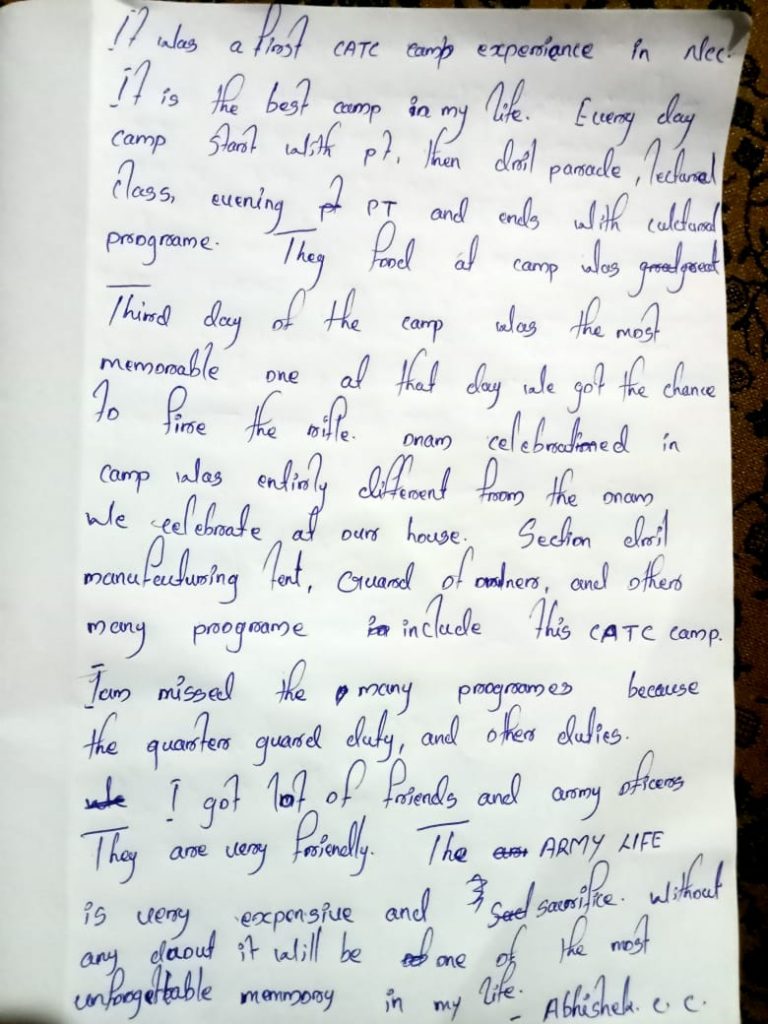 It was a first CATC camp experiance in Ncc.
It is the best camp in my life. Every day
camp start with pt, then dril parade, lectural
class, evening PT and ends with cultural
programe. They food at camp was great
Third day of the camp was the most
memorable one at that day we got the chance
to fire the rifle. onam celebrationed in
camp was entirly different from the onam
We celebrate at our house. Section dril
manufecturing tent, Guard of ordners, and others
many programe include this CATC camp.
Iam missed the many programes because
the quarters guard duty, and other duties.
I got lot of friends and army oficers
They are very friendly. The ARMY LIFE
is very expensive and sacrifice. Without
any daout it will be one of the most
unforgettable memmory in my life.
- Abhishek. C. C.